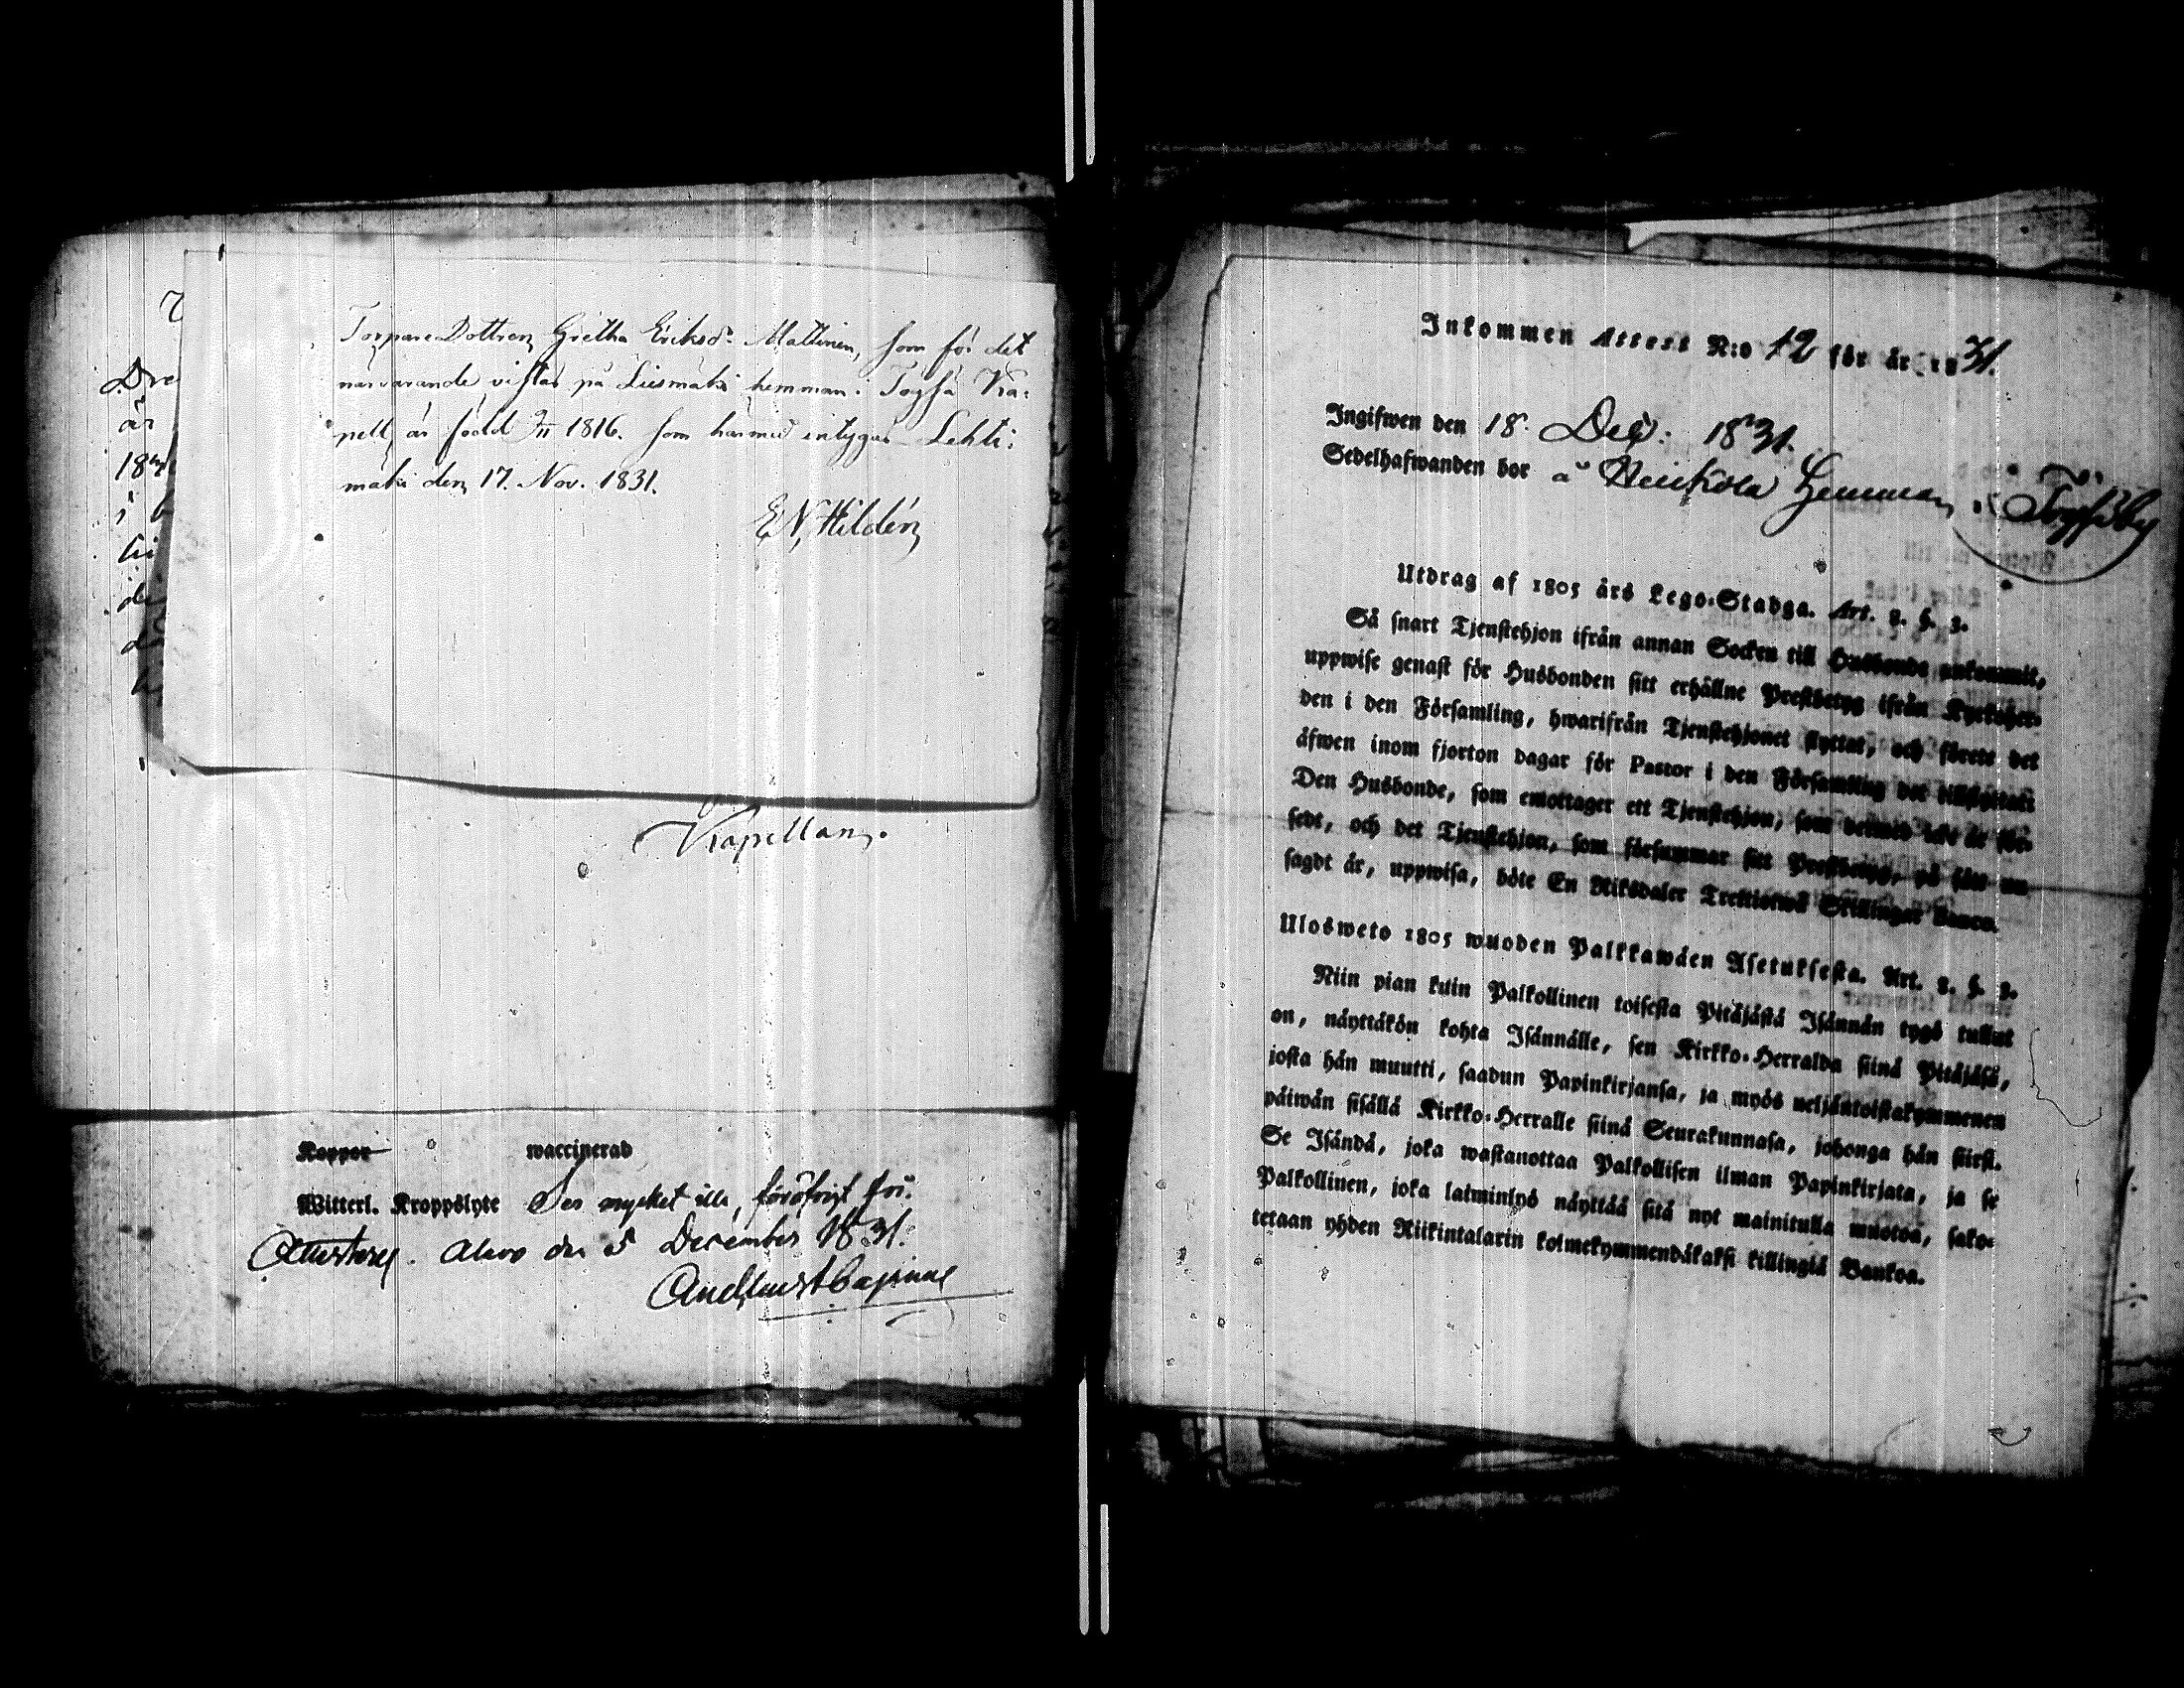 Torpare Dottren Gretha Eriksdr Mattinen, som för det
närvarande vistas på Liesmäki hemman i Töysä Ka-
pell, är född 7/11 1816. som härmed intygas Lehti-
mäki den 17. Nov. 1831.
E N Hildén
Kapellan.
Dre
är
Koppor waccinerad
Witterl. Kroppslyte Ser mycket illa, föröfrigt
Alavo den 5 December 1831.
Inkommen Attest N:o 12 för år 1831.
Ingifwen den 18. Dec: 1831.
Sedelhafwanden bor å Heikola Hemman i Töysäby
Utdrag af 1805 års Lego-Stadga. Art. 2. §. 3.
Så snart Tjenstehjon ifrån annan Socken till Husbonde ankommit,
uppwise genast för Husbonden sitt erhållne Prestbetyg ifrån Kyrkoher-
den i den Församling, hwarifrån Tjenstehjonet flyttat, och förete det
äfwen inom fjorton dagar för Pastor i den Församling det tillflyttat.
Den Husbonde, som emottager ett Tjenstehjon, som dermed icke är för-
sedt, och det Tjenstehjon, som försummar sitt Prestbetyg, på sätt nu
sagdt är, uppwisa, böte En Riksdaler Trettiotwå Skillingar Banco.
Ulosweto 1805 wuoden Palkkawäen Asetuksesta. Art. 2. §. 3.
Niin pian kuin Palkollinen toisesta Pitäjästä Isännän tygö tullut
on, näyttäkön kohta Isännälle, sen Kirkko-Herralda siinä Pitäjäsä,
josta hän muutti, saadun Papinkirjansa, ja myös neljäntoistakymmenen
päiwän sisällä Kirkko-Herralle siinä Seurakunnasa, johonga hän siirsi.
Se Isändä, joka wastanottaa Palkollisen ilman Papinkirjata, ja se
Palkollinen, joka laiminlyö näyttää sitä nyt mainitulla muotoa, sako-
tetaan yhden Riikintalarin kolmekymmendäkaksi killingiä Bankoa.